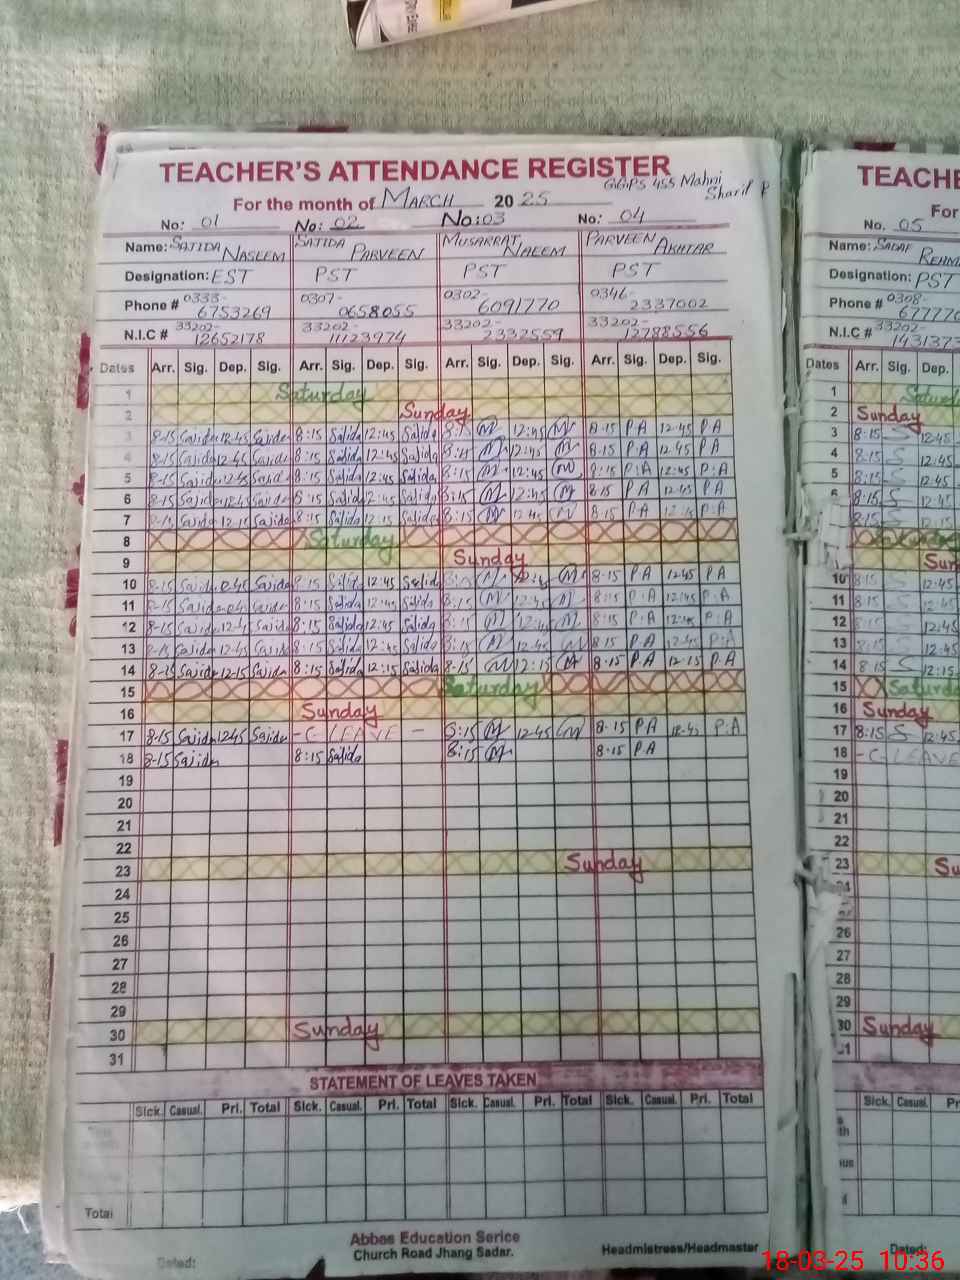 TEACHER'S ATTENDANCE REGISTER
GGPS 455 Mahni
Sharif P
For the month of MARCH 2025
No: 01 No: 02 No: 03 No: 04
Name: SAJIDA NASEEM SAJIDA PARVEEN MUSARRAT NAEEM PARVEEN AKHTAR
Designation: EST PST PST PST
Phone # 0333-6753269 0307-0658055 0302-6091770 0346-2337002
N.I.C # 33202-12652178 33202-11123974 33202-2332559 33202-12788556
Dates Arr. Sig. Dep. Sig. Arr. Sig. Dep. Sig. Arr. Sig. Dep. Sig. Arr. Sig. Dep. Sig.
1 Saturday
2 Sunday
3 8-15 Sajida 12-45 Sajida 8:15 Sajida 12:45 Sajida 8:15 M 12:45 M 8-15 P A 12-45 P A
4 8-15 Sajida 12-45 Sajida 8:15 Sajida 12:45 Sajida 8:15 M 12:45 M 8:15 P A 12.45 P A
5 8-15 Sajida 12-45 Sajida 8:15 Sajida 12:45 Sajida 8:15 M 12:45 M 8:15 P:A 12:45 P:A
6 8-15 Sajida 12-45 Sajida 8:15 Sajida 12:45 Sajida 8:15 M 12:45 M 8.15 P A 12.45 P A
7 8-15 Sajida 12-15 Sajida 8:15 Sajida 12:15 Sajida 8:15 M M 8:15 P A P.A
8 Saturday
9 Sunday
10 8-15 Sajida Sajida 8:15 Sajida 12:45 Sajida M M 8-15 P A 12-45 P A
11 8-15 Sajida Sajida 8:15 Sajida 12:45 Sajida 8:15 M 12:45 M 8:15 P:A 12-45 P:A
12 8-15 Sajida 12-45 Sajida 8:15 Sajida 12:45 Sajida 8:15 M 12:45 M 8:15 P:A 12:45 P:A
13 8-15 Sajida 12-45 Sajida 8:15 Sajida 12:45 Sajida 8:15 M 12:45 M 8:15 P A 12-45 P:A
14 8-15 Sajida 12-15 Sajida 8:15 Sajida 12:15 Sajida 8-15 M 12:15 M 8-15 P.A 12-15 P.A
15 Saturday
16 Sunday
17 8-15 Sajida 12-45 Sajida - C - LEAVE - 8:15 M 12:45 M 8-15 P.A 12-45 P.A
18 8-15 Sajida 8:15 Sajida 8:15 M 8-15 P.A
19
20
21
22
23 Sunday
24
25
26
27
28
29
30 Sunday
31
STATEMENT OF LEAVES TAKEN
Sick. Casual. Pri. Total Sick. Casual. Pri. Total Sick. Casual. Pri. Total Sick. Casual. Pri. Total
Total
Abbas Education Serice
Church Road Jhang Sadar.
Dated: Headmistress/Headmaster
TEACHE
For
No. 05
Name: SADAF REHM
Designation: PST
Phone # 0308-67777
N.I.C # 33202-143137
Dates Arr. Sig. Dep.
1 Satur
2 Sunday
3 8-15 S 12:45
4 8:15 S 12:45
5 8:15 S 12.45
6 8:15 S
7 8-15 S 12:15
8 Saturda
9 Sun
10 8:15 S 12:45
11 8:15 S 12:45
12 8:15 S 12:45
13 8:15 S 12:45
14 8:15 S 12:15
15 Saturda
16 Sunday
17 8:15 S 12:45
18 - C - LEAVE
19
20
21
22
23 Su
24
25
26
27
28
29
30 Sunday
31
Sick. Casual. Pr
Dated:
18-03-25 10:36